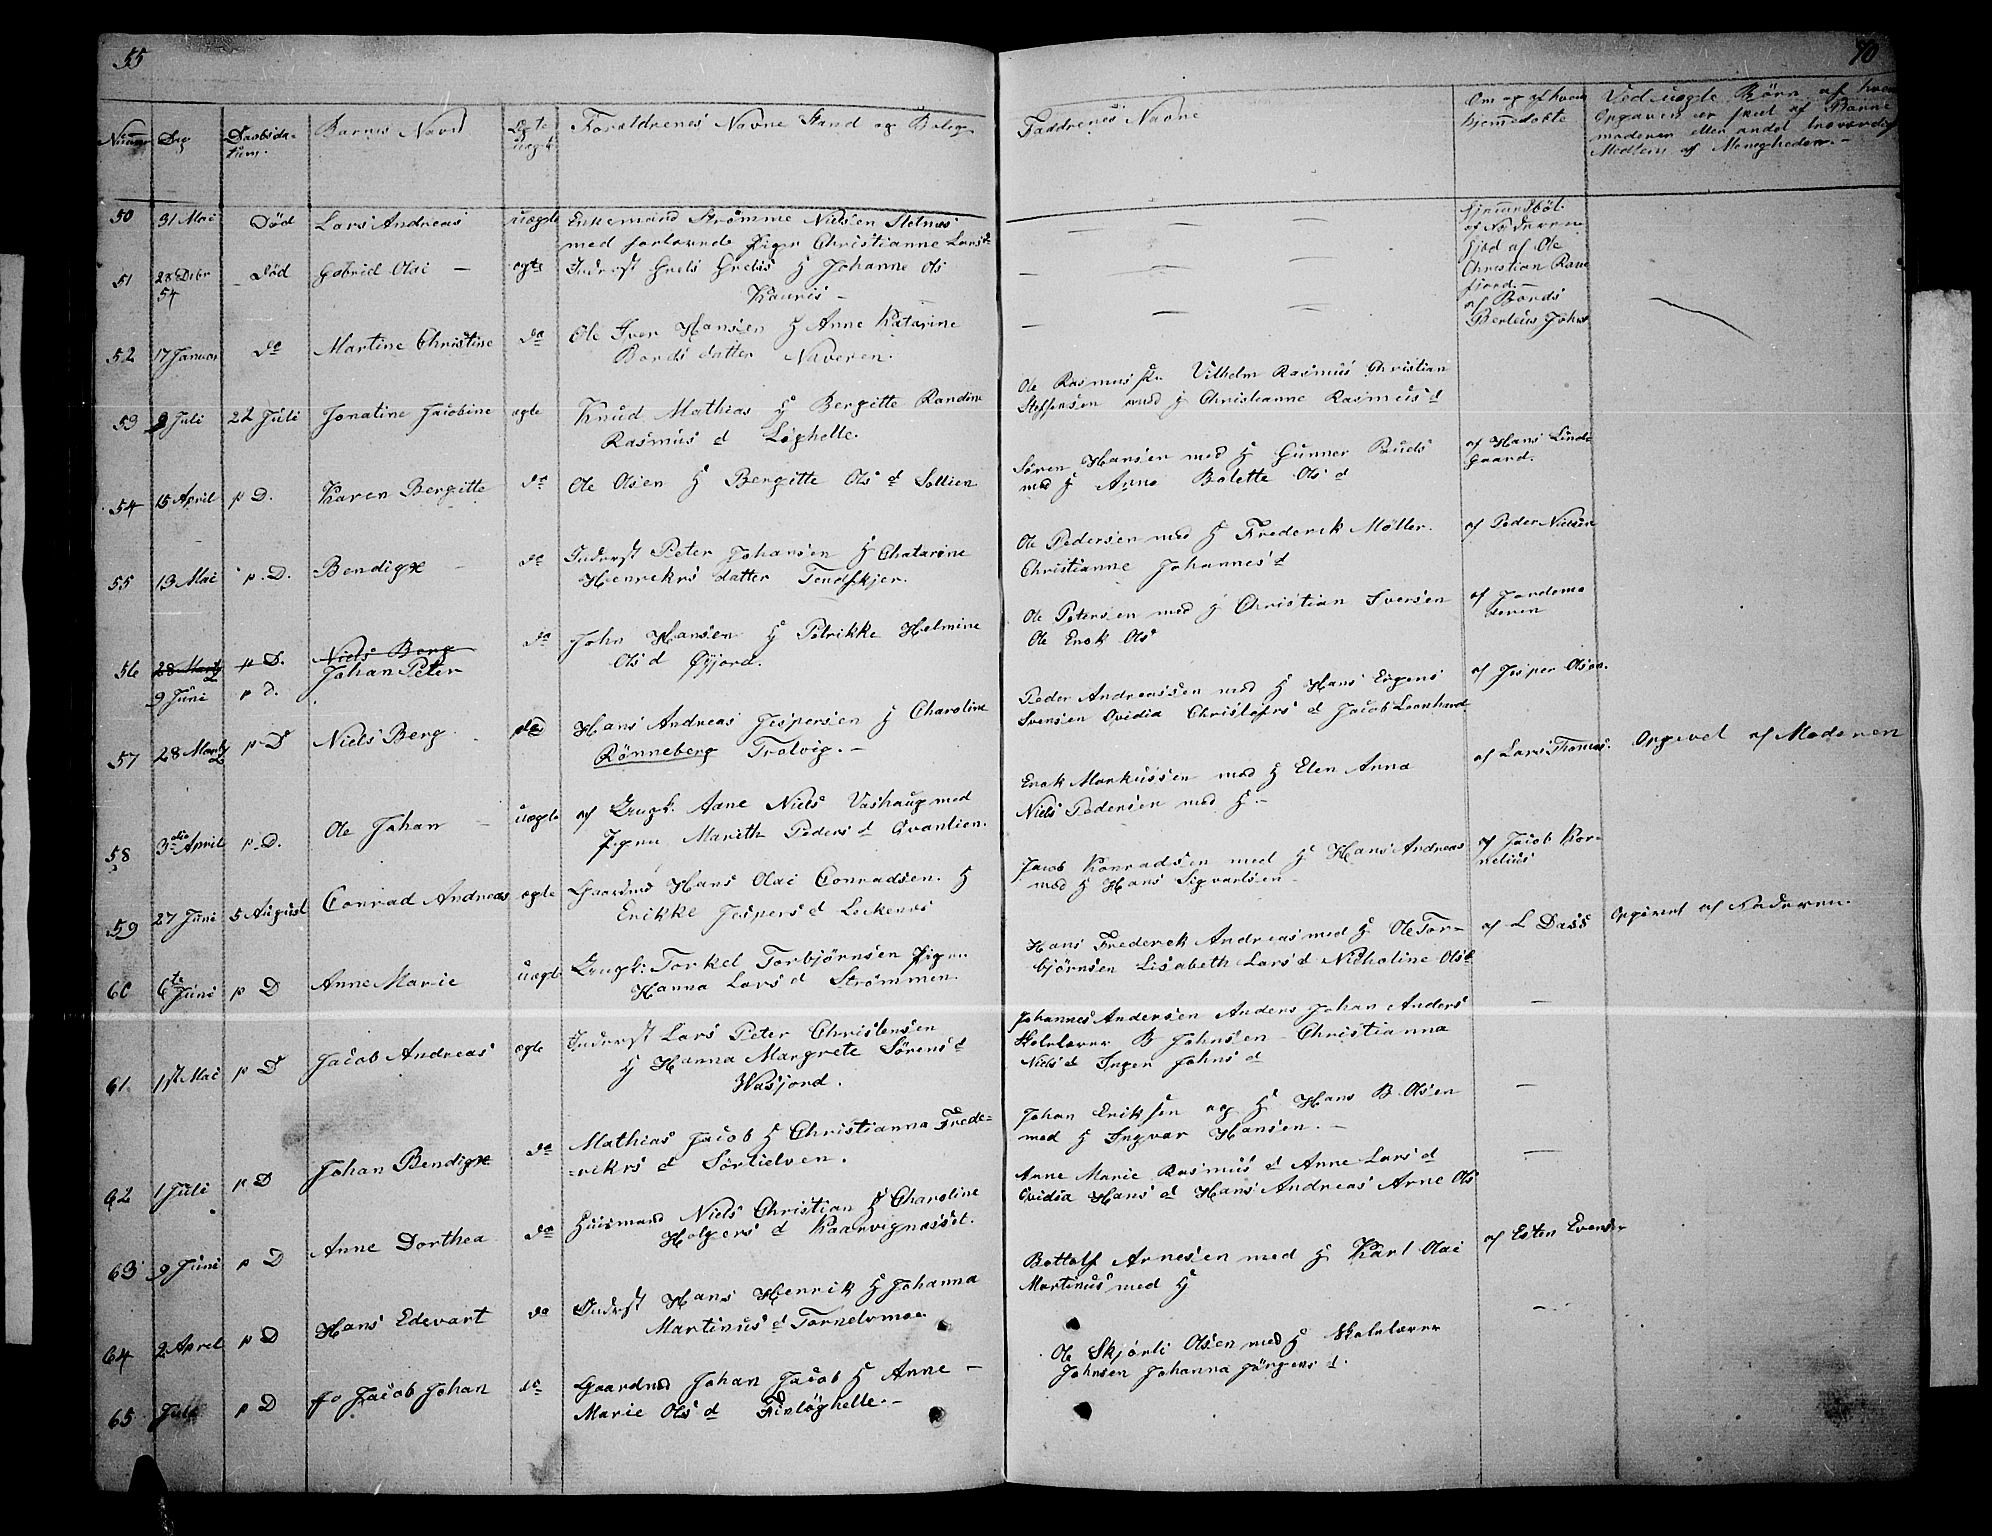 55
70
Numer Dag Daabsda-
tum. Barnets Navn Ægte
uægte Foraldrenes Navne Stand og Bolig
Faddrenes Navne
Om og af hvem
hjemmedøbte
Ved uægte Børn af hvem
Opgaven er skeet af Barne
moderen eller andet troværdig
Medlem af Menigheden.-
50 31 Mai Død Lars Andreas uægte Enkemand Strømme Nielsen Slotnæs
med forlovede Pigen Christianne Lars
51 28 Debr
54 Død Gabriel Olai - ægte Inderst Grels Grelis H Johanne Ols
Kauris -
af Faderen
Gjød af Ole
Christian Rane
fjord.-
52 17 Januar do Martine Christine do Ole Iver Hansen H Anne Katarine
Bords datter Naveren.
af Bords
Berteus Johns
53 9 Juli 22 Juli Jonatine Jacobine ægte Knud Mathias H Bergitte Randine
Rasmus d Løghelle.
Ole Rasmus Vilhelm Rasmus Christian
Steffensen med H Christianne Rasmus d
54 15 April p D. Karen Bergitte do Ole Olsen H Bergitte Ols d Sollien
Søren Hansen med H Gunner Pouds
med H Anna Bolette Ols d
af Hans Linde
gaard.
55 13 Mai p.D. Bendigx - do Inderst Peter Johansen H Chatarine
Henrekrs datter Tendskjer.
Ole Pedersen med H Frederik Møller.
Christianne Johannes d
af Peder Nielsen
56 28 Marts p D. Niels Borg
9 Juni p D. Johan Peter do John Hansen H Petrikke Helmine
Ols d Øyjord.
Ole Petersen med H Christian Iversen
Ole Enok Ols
af Jordemo
deren
57 28 Marts p D Niels Berg do Hans Andreas Jespersen H Charoline
Rønneberg Trolvig.-
Peder Andreassen med H Hans Eugens
Svensen Ovidia Christofers d Jacob Leonhard
af Jesper Olsen.
58 3die April p.D. Ole Johan - uægte af Ungk. Aane Niels Vashaug med
Pigen Mareth Peders d Qvantien.
Enok Markussen med H Elen Anna
Niels Pedersen med H.-
af Lars Thomas. Opgivet af Moderen
59 27 Juni 5 August Conrad Andreas ægte Gaardmd Hans Olai Conradsen H
Erikke Jespers d Leekenes
Jacob Konradsen med H Hans Andreas
med H Hans Sigvartsen -
af Jacob Kor-
nelius
60 6te Juni p D Anne Marie uægte Ungk: Torkel Torbjørnsen Pigen
Hanna Lars d Strømmen.
Hans Frederek Andreas med H Ole Tor-
bjørnsen Lisabeth Lars d Nicholine Ols d
af L Dass Opgivet af Faderen.
61. 1st Mai p D Jacob Andreas ægte Inderst Lars Peter Christensen
H Hanna Margrete Sørens d
Wasjord.
Johannes Andersen Anders Johan Anders
Skolelærer B Johnsen - Christianna
Niels d Inger Johns d
-
62 1 Juli p D Johan Bendigx do Mathias Jacob H Christianna Frede-
rekrs d Sørtielven.
Johan Eriksen og H Hans B Olsen
med H Ingvar Hansen.-
-
63 9 Juni p D Anne Dorthea do Huusmand Niels Christian H Charoline
Holgers d Kaarvignæsset.
Anne Marie Rasmus d Anne Lars d
Ovidia Hans d Hans Andreas Arne Ols
-
64 2 Aprel p D Hans Edevart do Inderst Hans Henrik H Johanna
Martinus d Tornelvmoe
Bottolf Arnesen med H Karl Olai
Martinus med H
af Esten Evensen
65 Juli p D Jo Jacob Johan do Gaardmd Johan Jacob H Anne -
Marie Ols d Finløghelle.-
Ole Skjorli Olsen med H Skolelærer
Johnsen Johanna Jørgens d.
-